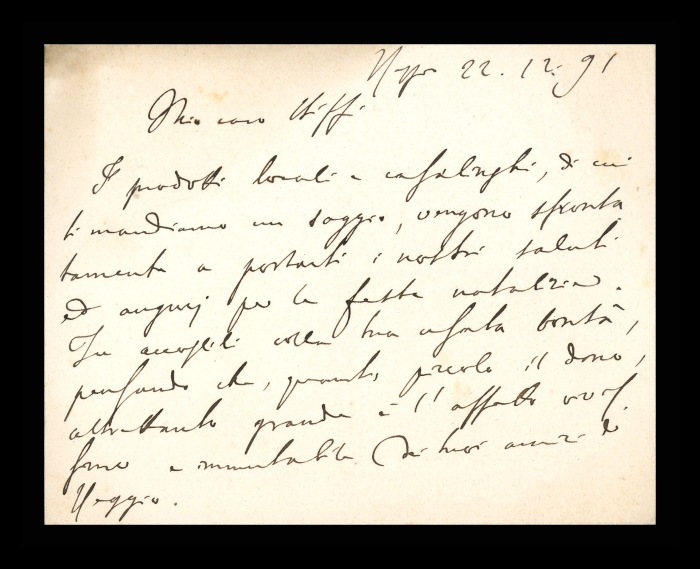 22. 12. 91
Mio caro
I prodotti locali e casalinghi, di cui
ti mandiamo un saggio, vengono sfronta
tamente a portarti i nostri saluti
ed augurj per le feste natalizie.
Tu accoglili colla tua usata bontà,
pensando che, quanto piccolo il dono,
altrettanto grande è l'affetto
e immutabile dei tuoi amici di
Reggio.